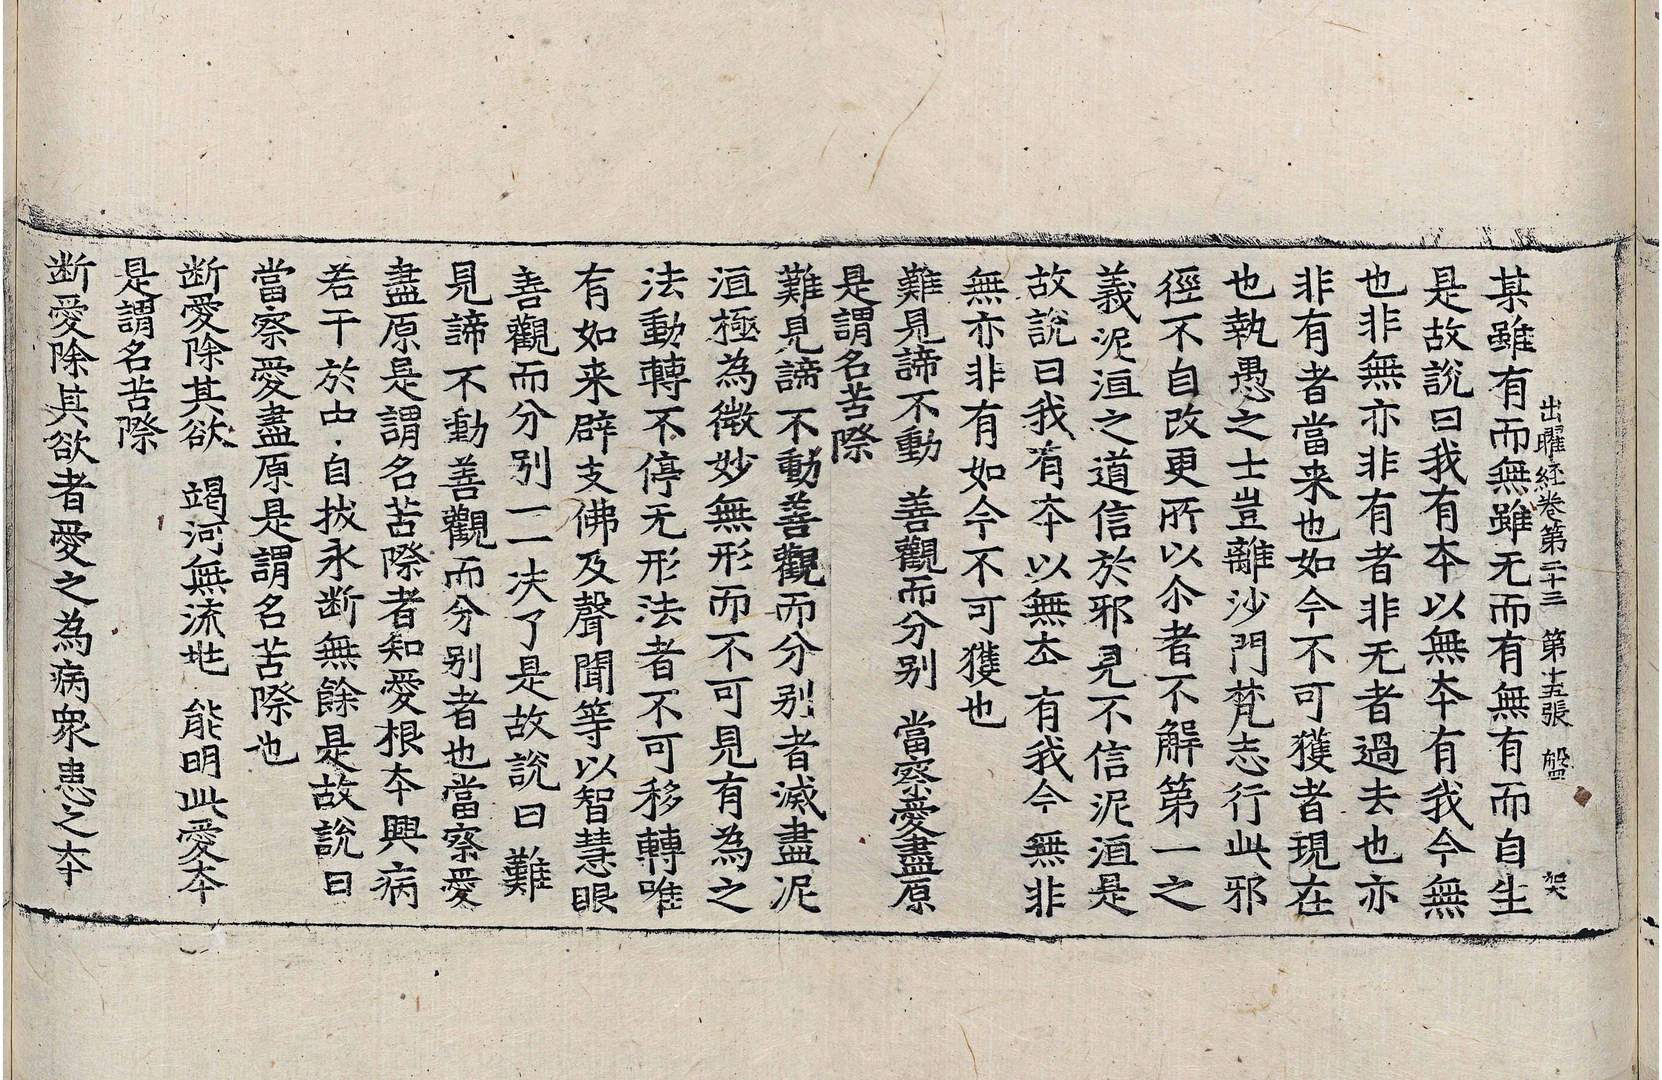 出曜経卷第二十三 第十五張 盤
某雖有而無雖无而有無有而自生
是故說曰我有夲以無夲有我今無
也非無亦非有者非无者過去也亦
非有者當来也如今不可獲者現在
也執愚之士豈離沙門梵志行此邪
徑不自改更所以尒者不解第一之
義泥洹之道信於邪見不信泥洹是
故說曰我有夲以無夲有我今無非
無亦非有如今不可獲也
難見諦不動 善觀而分别 當察愛盡原
是謂名苦際
難見諦不動善觀而分别者滅盡泥
洹極為微妙無形而不可見有為之
法動轉不停无形法者不可移轉唯
有如来辟支佛及聲聞等以智慧眼
善觀而分別一一决了是故說曰 難
見諦不動善觀而分别者也當察愛
盡原是謂名苦際者知愛根夲興病
若干於中自拔永断無餘是故說曰
當察愛盡原是謂名苦際也
断愛除其欲 竭河無流㐌 能明此愛夲
是謂名苦際
断愛除其欲者愛之為病衆患之夲